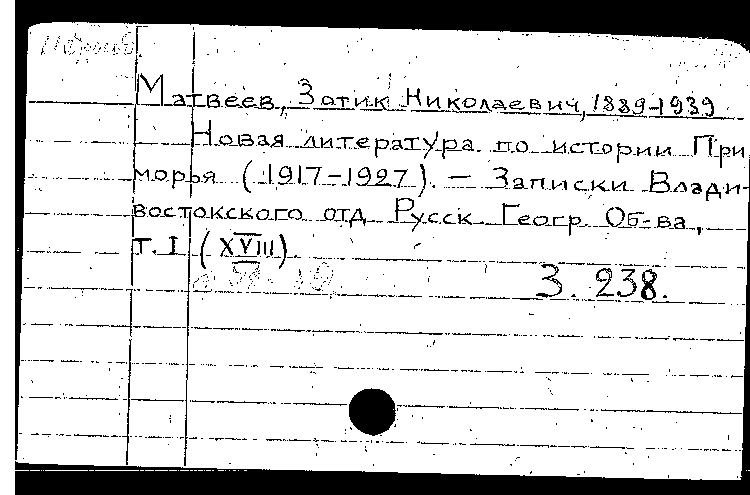 Матвеев, Зотик Николаевич, 1889-1939
Новая литература по истории При
морья (1917-1927). — Записки Влади-
востокского отд. Русск. Геогр. Об-ва,
т. I (XVIII).
3. 238.